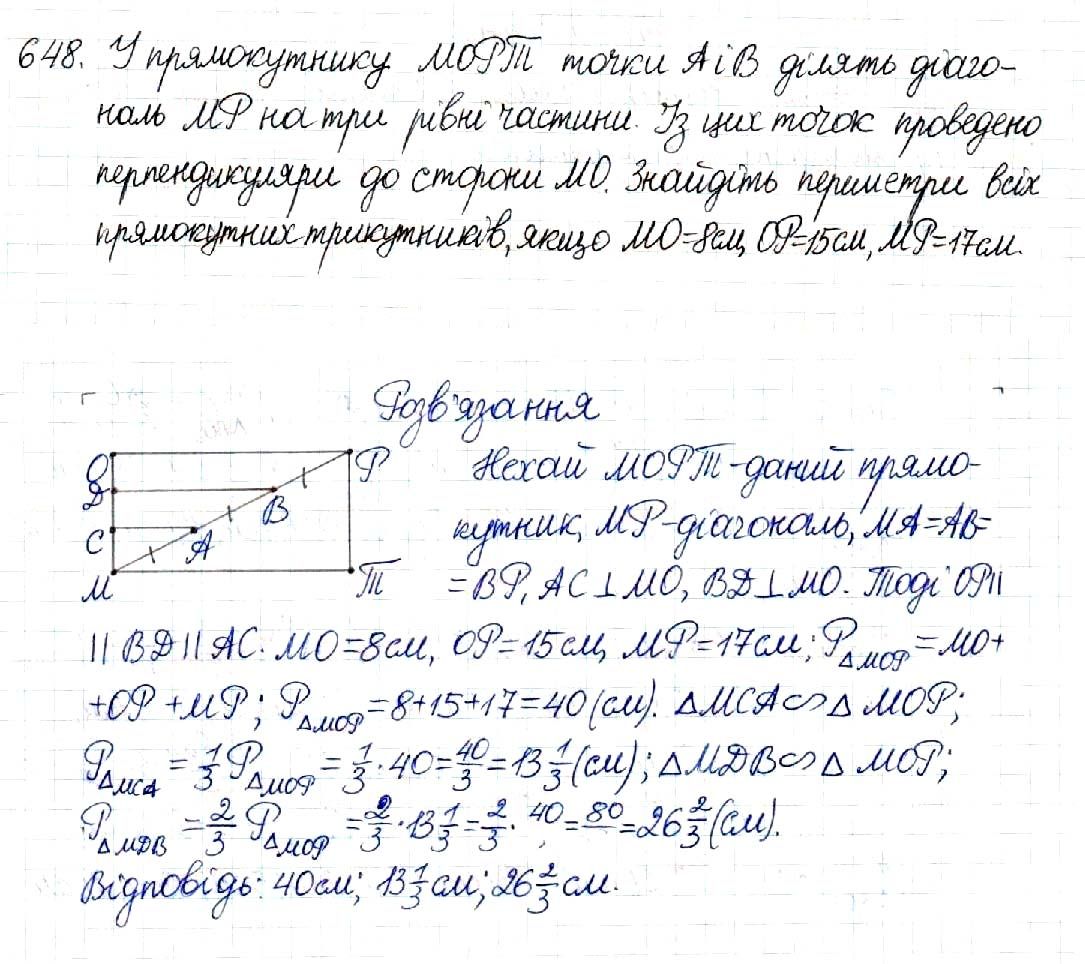 648. У прямокутнику МОРТ точки А і В ділять діаго-
наль МР на три рівні частини. Із цих точок проведено
перпендикуляри до сторони МО. Знайдіть периметри всіх
прямокутних трикутників, якщо МО=8см, ОР=15см, МР=17см.
Розв'язання
О Р
D
B
C
A
М Т
Нехай МОРТ-даний прямо-
кутник, МР-діагональ, МА=АВ=
=ВР, АС⊥МО, ВD⊥МО. Тоді ОР||
||ВD||АС. МО=8см, ОР=15см, МР=17см; P△МОР=МО+
+ОР+МР; P△МОР=8+15+17=40(см). △МСА∽△МОР;
P△МСА = 1/3 P△МОР = 1/3·40=40/3=13 1/3(см); △MDB∽△МОР;
P△MDB = 2/3 P△МОР = 2/3·13 1/3=2/3·40=80/=26 2/3(см).
Відповідь: 40см; 13 1/3см; 26 2/3см.